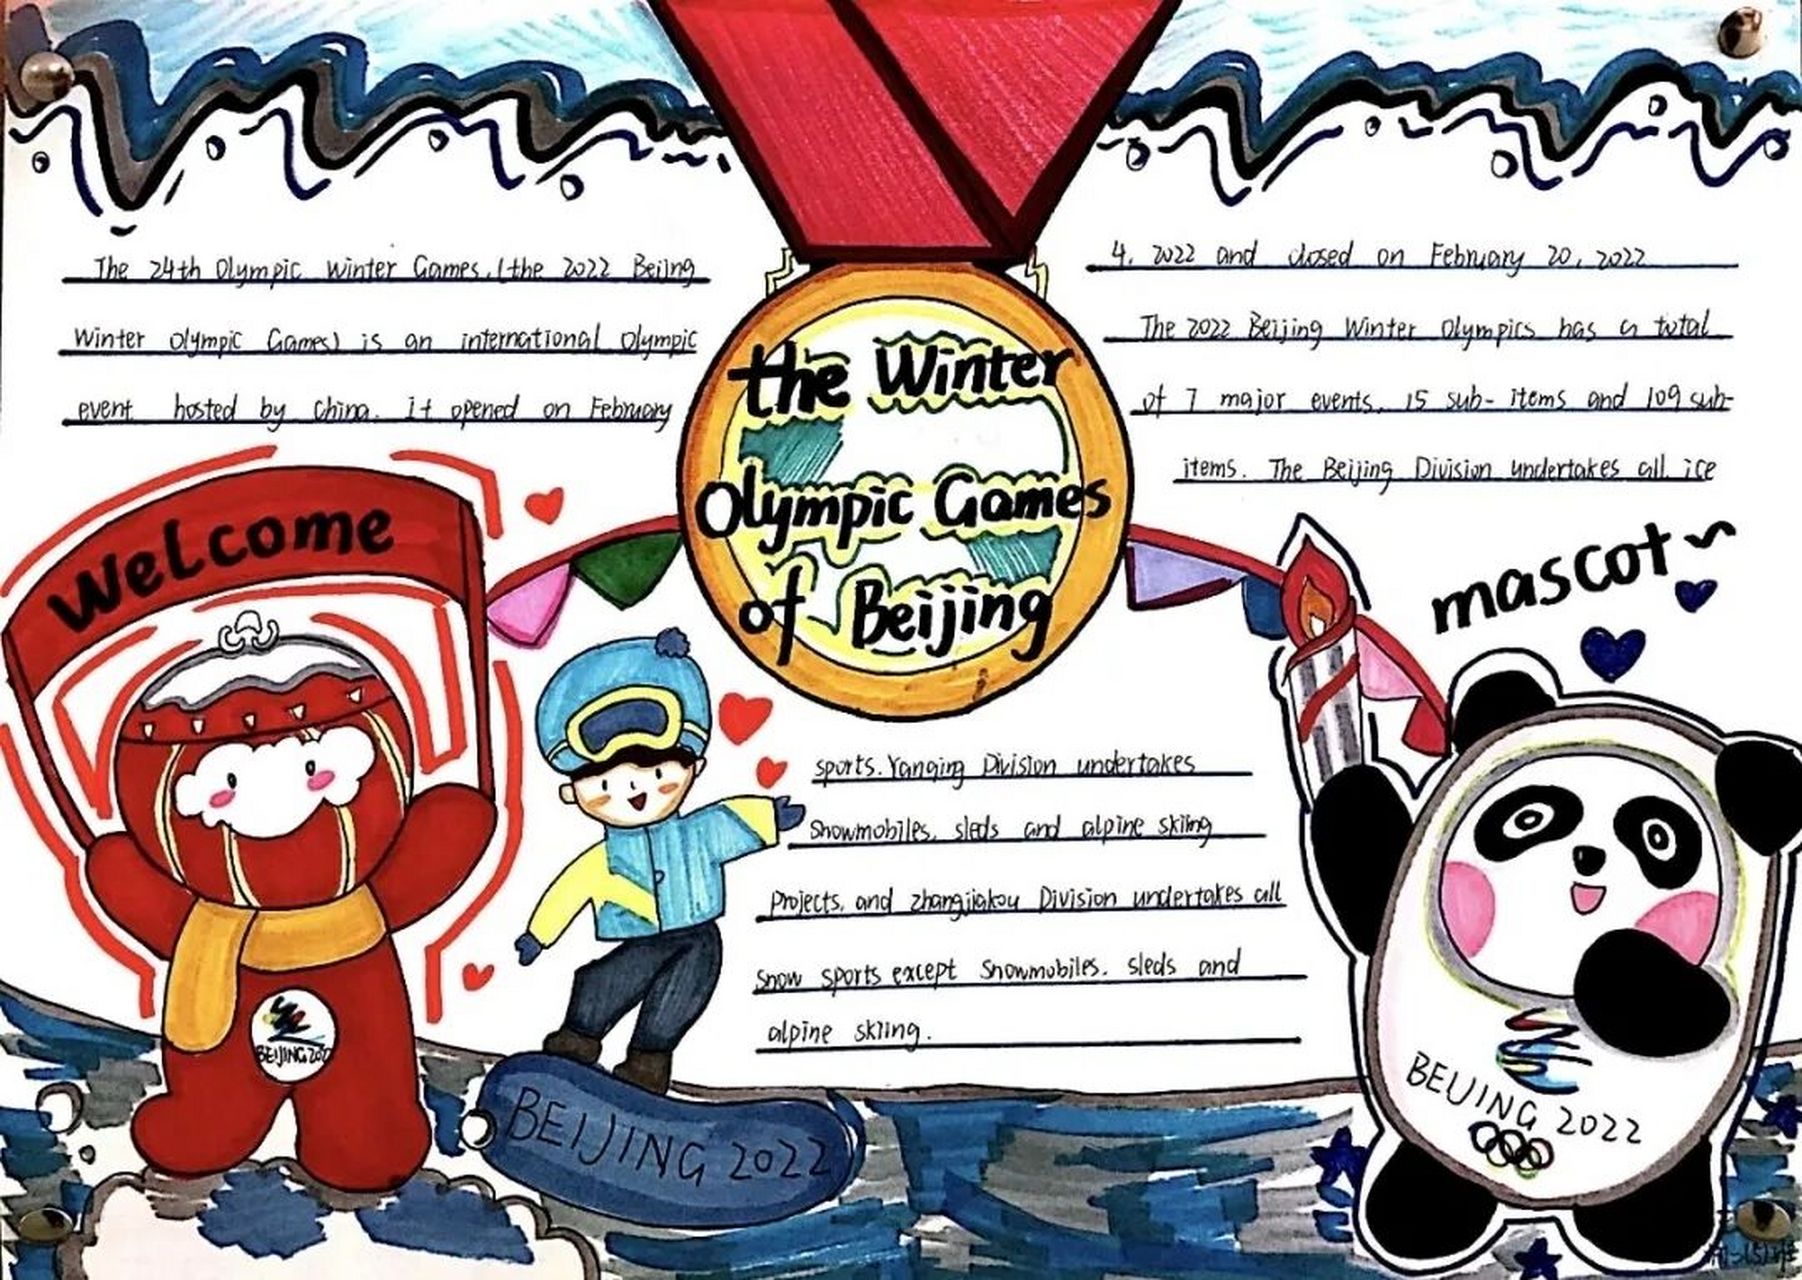 The 24th Olympic Winter Games. (the 2022 Beijng
Winter Olympic Games) is an international Olympic
event hosted by China. It opened on February
4, 2022 and closed on February 20, 2022
The 2022 Beijing Winter Olympics has a total
of 7 major events, 15 sub-items and 109 sub-
items. The Beijing Division undertakes all ice
sports. Yanqing Division undertakes
Snowmobiles, sleds and alpine skiing
Projects, and zhangjiakou Division undertakes all
snow sports except Snowmobiles. sleds and
alpine skiing.
the Winter
Olympic Games
of Beijing
Welcome
mascot~
BEIJING 2022
BEIJING 2022
BEIJING 2022